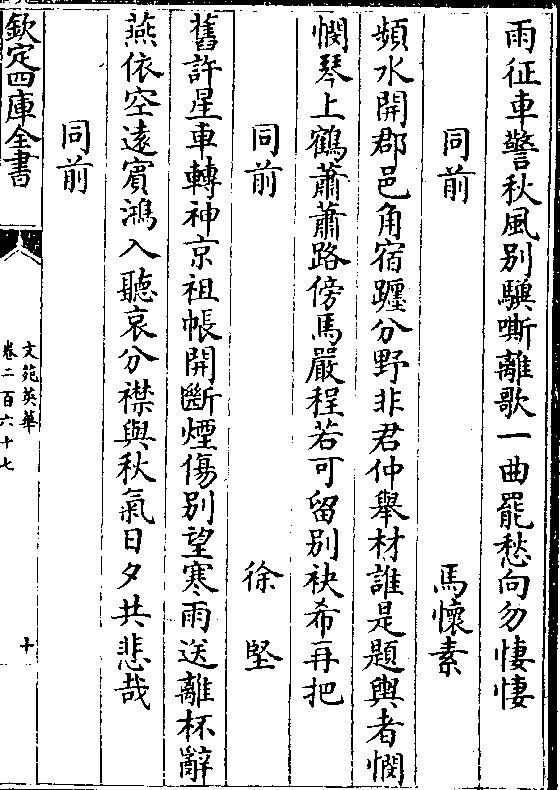 雨征車警秋風别驥嘶離歌一曲罷愁向勿悽悽
同前　馬懷素
潁水開郡邑角宿躔分野非君仲舉材誰是題輿者憫
憫琴上鶴蕭蕭路傍馬嚴程若可留别袂希再把
同前　徐堅
舊許星車轉神京祖帳開斷煙傷别望寒雨送離杯辭
燕依空遠賓鴻入聽哀分襟與秋氣日夕共悲哉
同前
欽定四庫全書
文苑英華
卷二百六十七
十